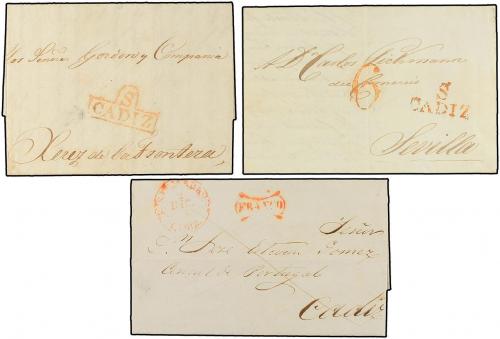 Los Señores Gordon y Compania
S
CADIZ
Xerez de la Frontera
A Dn Carlos
6
S.
CADIZ
Sevilla
FRANCO
Señor
Dn Jose Estevan Gomez
Consul de Portugal
Cadiz